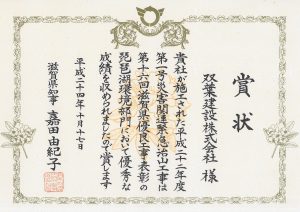 賞状
双葉建設株式会社 様
貴社が施工された平成二十二年度
第二号災害関連緊急治山工事は
第十六回滋賀県優良工事表彰の
琵琶湖環境部門において優秀な
成績を収められましたので賞します
平成二十四年十月十七日
滋賀県知事 嘉田由紀子